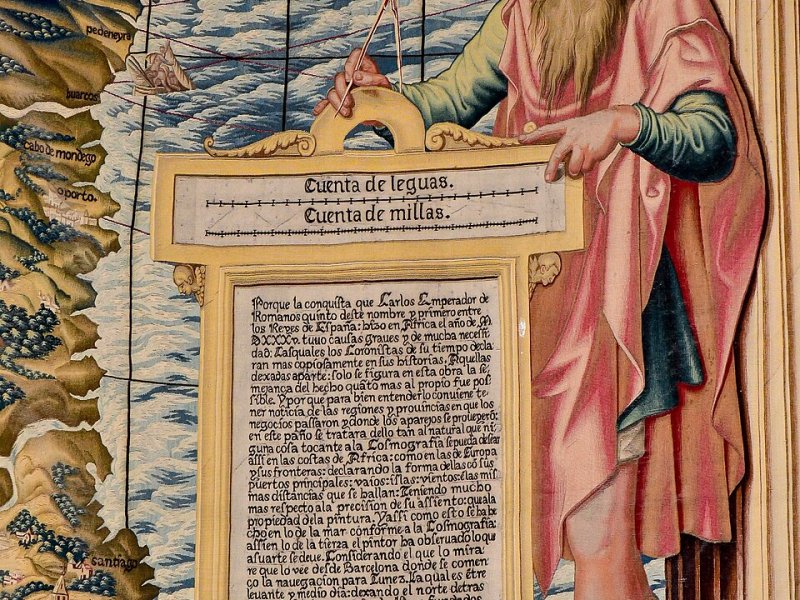 pedeneyra
buarcos
cabo de mondego
oporto
santiago
Cuenta de leguas.
Cuenta de millas.
Porque la conquista que Carlos Emperador de
Romanos quinto deste nombre y primero entre
los Reyes de España: hizo en Africa el año de M
DXXXV. tuuo causas graues y de mucha necessi
dad. Lasquales los Coronistas de su tiempo decla
ran mas copiosamente en sus historias. Aquellas
dexadas aparte: solo se figura en esta obra la se,
mejança del hecho quãto mas al propio fue pos
sible. Y porque para bien entender lo conuiene te
ner noticia de las regiones y prouincias en que los
negocios passaron y donde los aparejos se proueyerõ:
en este paño se tratara dello tan al natural que ni
guna cosa tocante a la Cosmografia se pueda desear
assi en las costas de Africa: como en las de Europa
y sus fronteras: declarando la forma dellas cõ sus
puertos principales: vaios: islas: vientos: e las mis
mas distancias que se hallan: Teniendo mucho
mas respeto ala precision de su assiento: quala
propiedad dela pintura. Y assi como esto se ha he
cho en lo de la mar conforme a la Cosmografia:
assi en lo de la tierra el pintor ha obseruado lo que
a su arte se deue. Considerando el que lo mira
re que lo vee desde Barcelona donde se comen
ço la nauegacion para Tunez. La qual es ẽtre
leuante y medio dia: dexando el norte detras